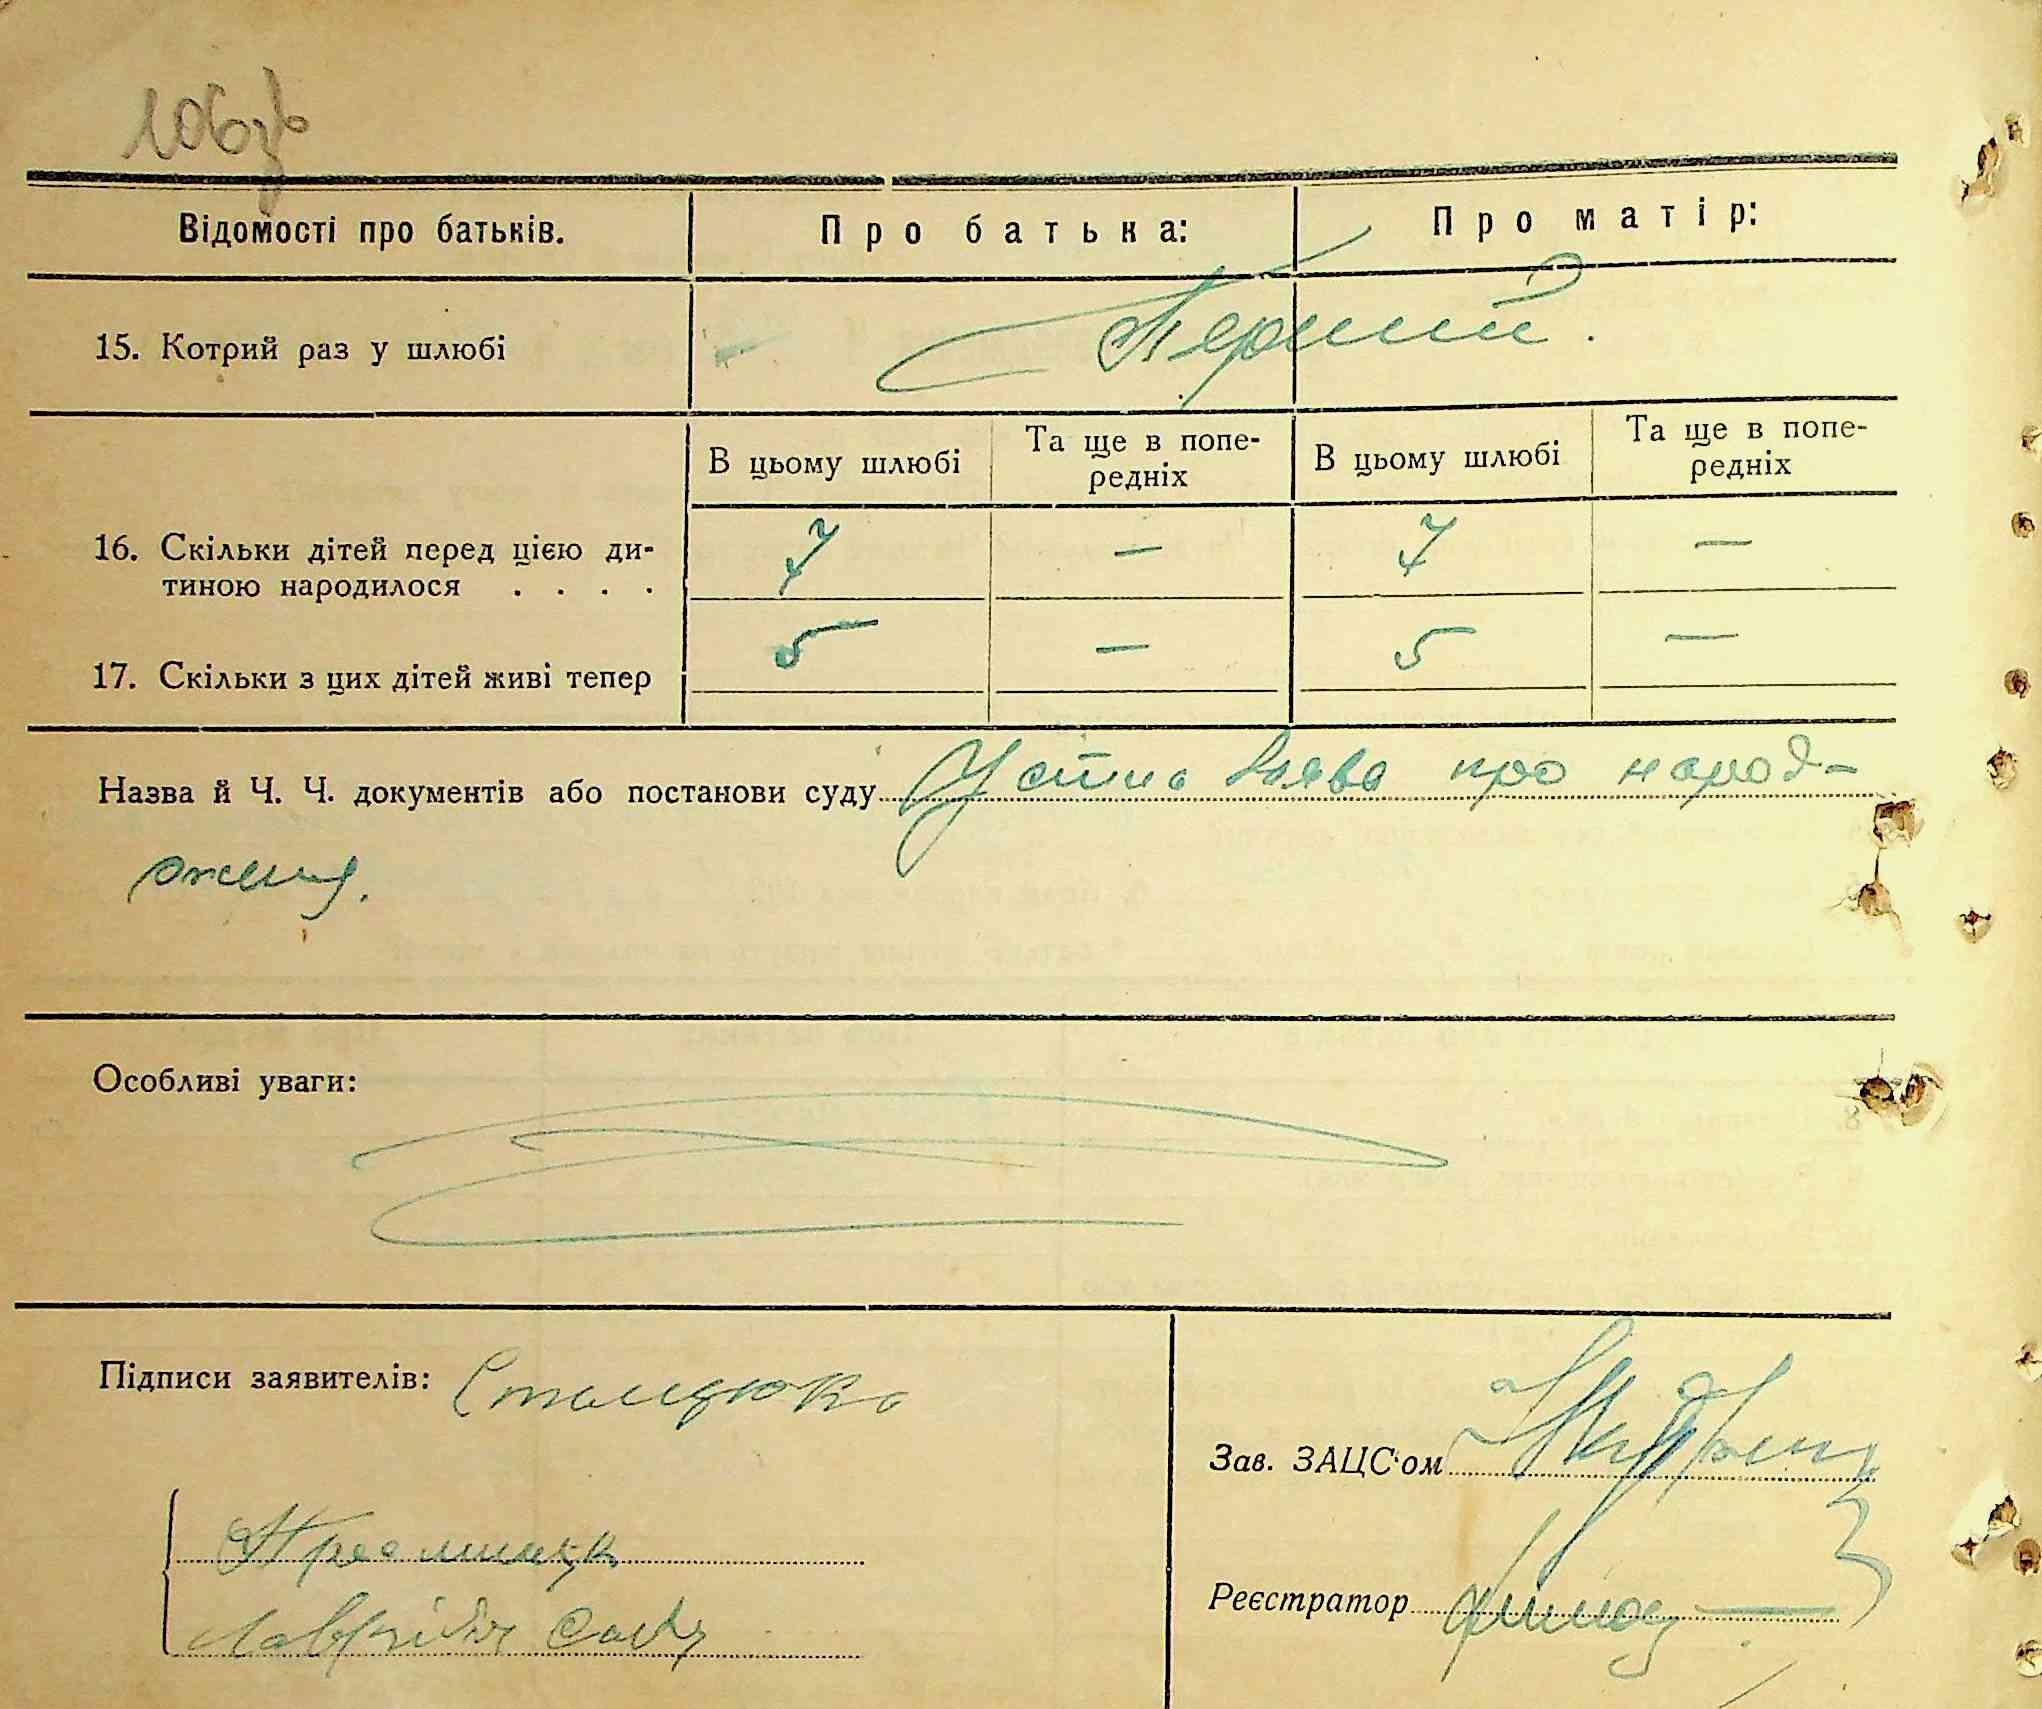 106зв
Відомості про батьків. Про батька: Про матір:
15. Котрий раз у шлюбі Перший.
В цьому шлюбі Та ще в попе-редніх В цьому шлюбі Та ще в попе-редніх
16. Скільки дітей перед цією ди-
тиною народилося . . . . 7 — 7 —
17. Скільки з цих дітей живі тепер 5 — 5 —
Назва й Ч. Ч. документів або постанови суду Устна Заява про народ-
ження.
Особливі уваги:
Підписи заявителів:
Зав. ЗАЦС'ом
Реєстратор